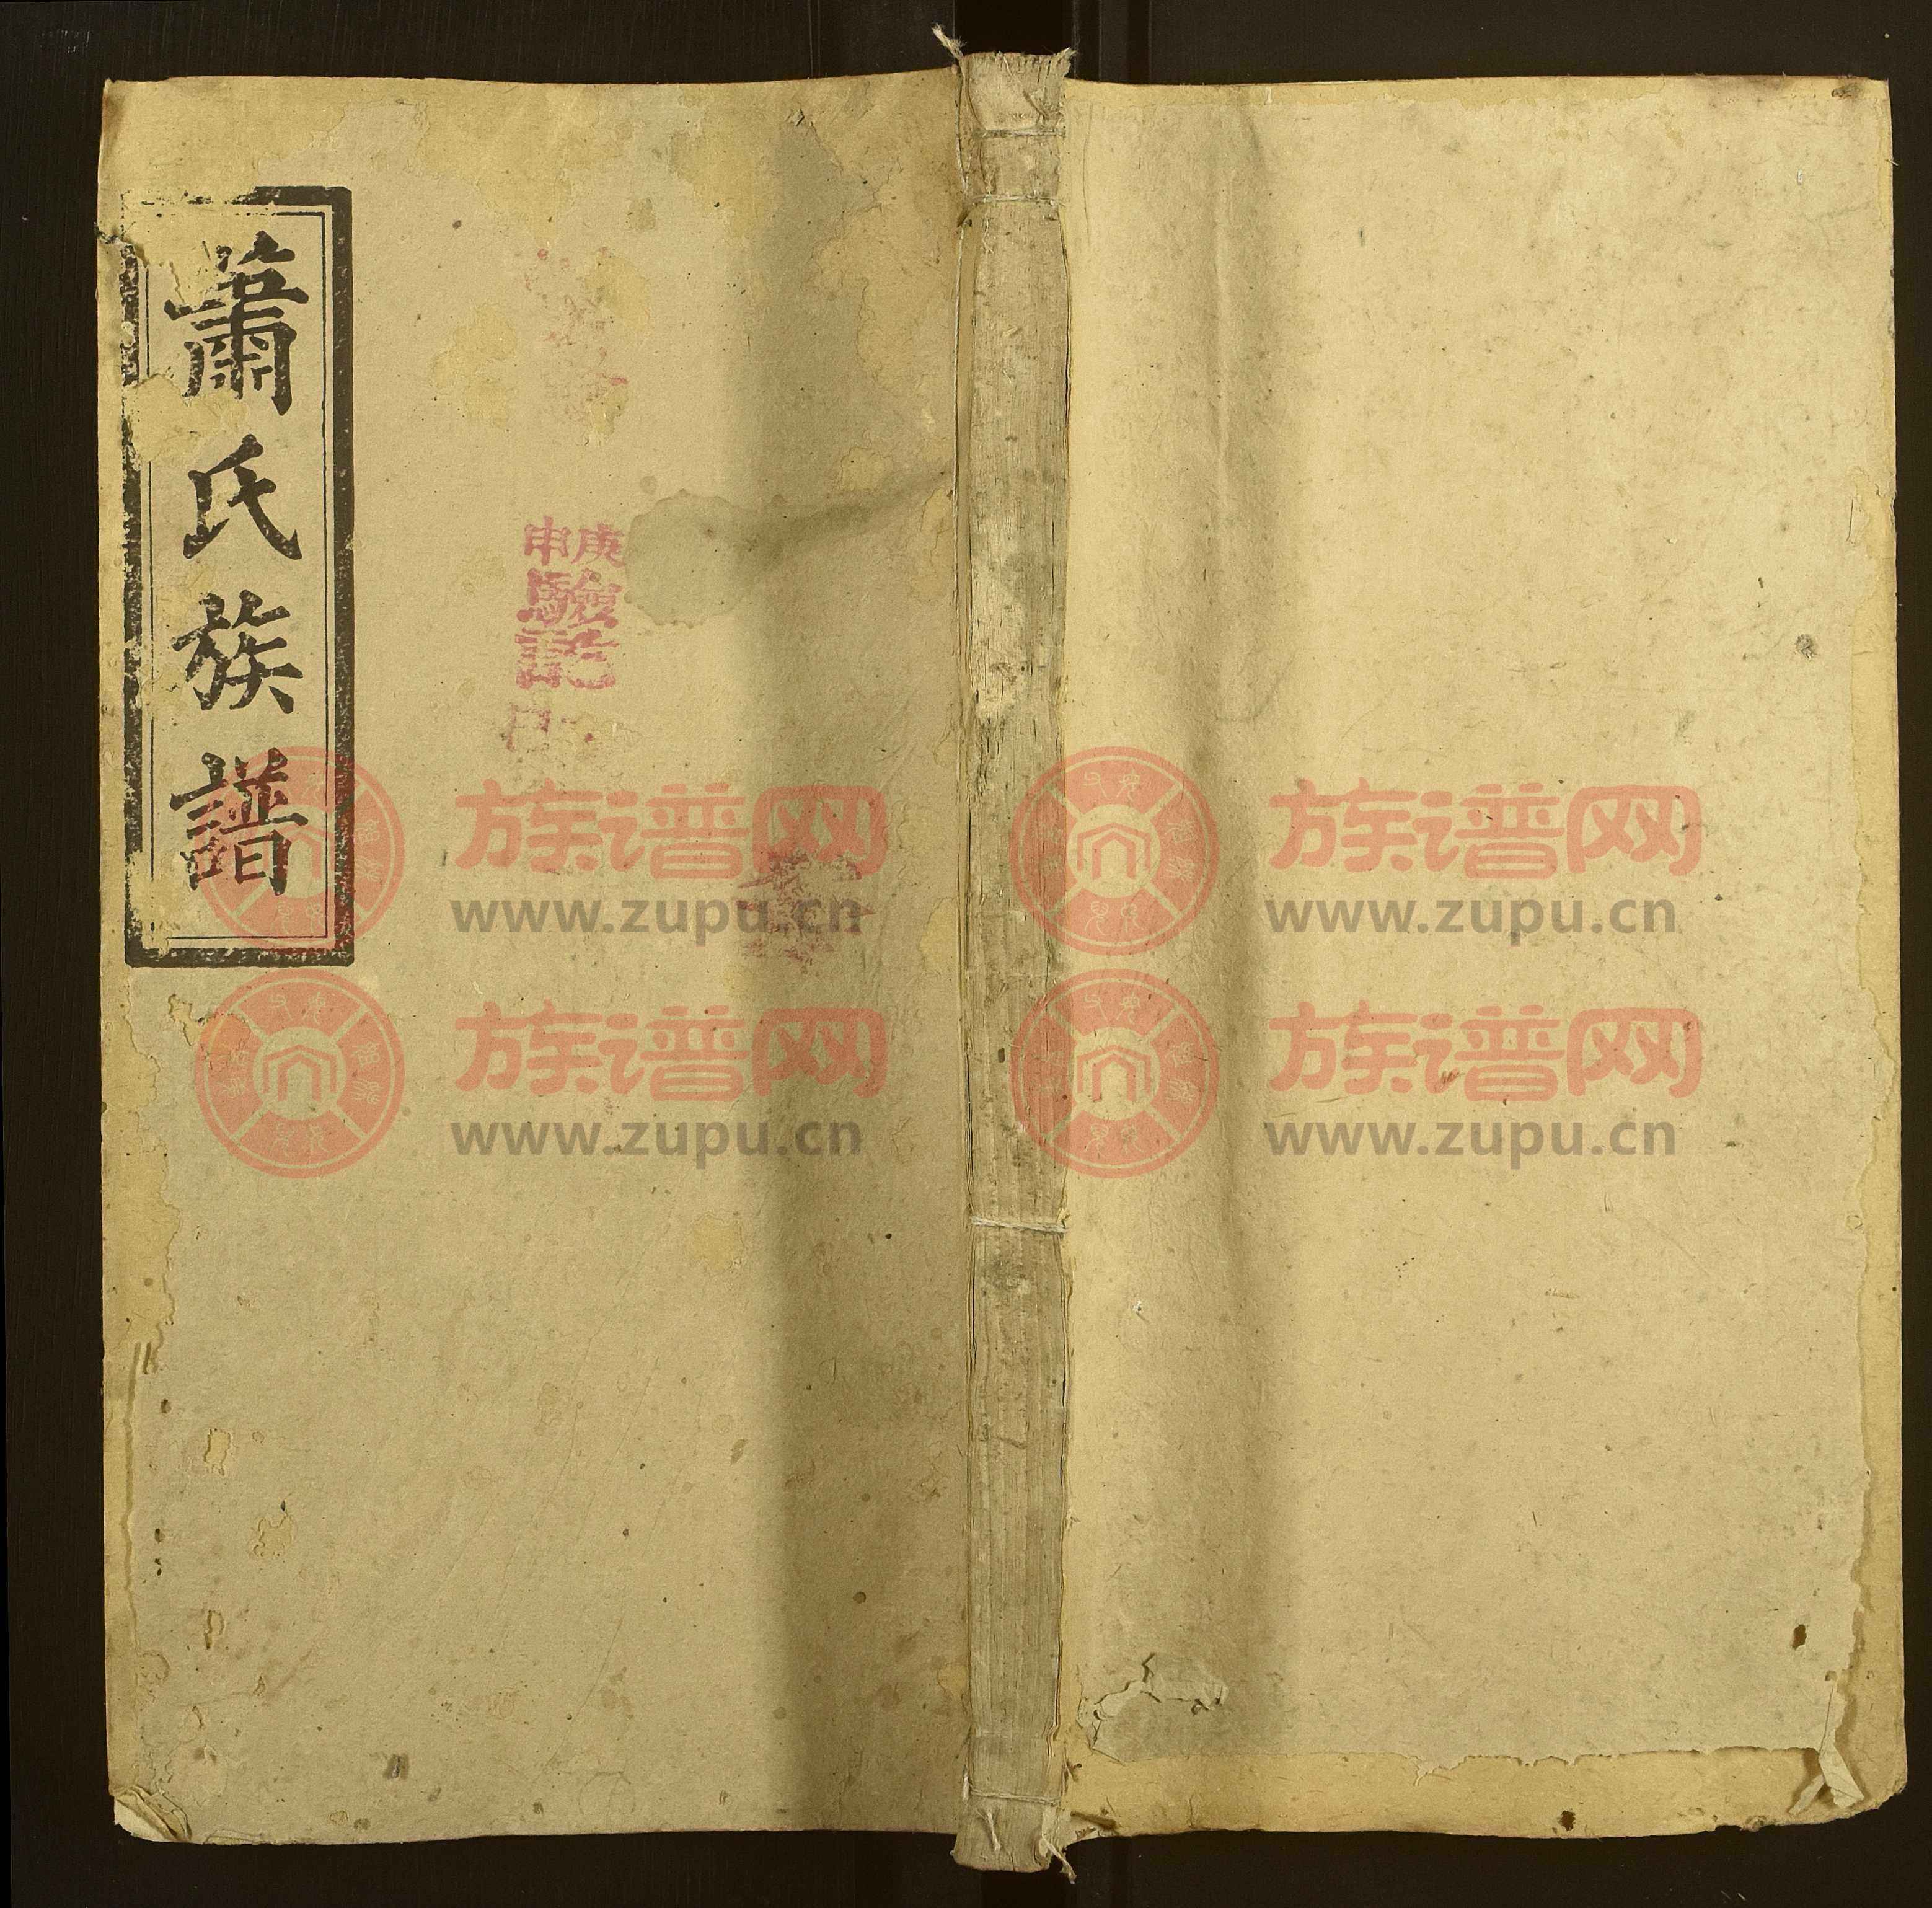 蕭氏族譜
庚申
驗訖
族谱网
www.zupu.cn
族谱网
www.zupu.cn
族谱网
www.zupu.cn
族谱网
www.zupu.cn